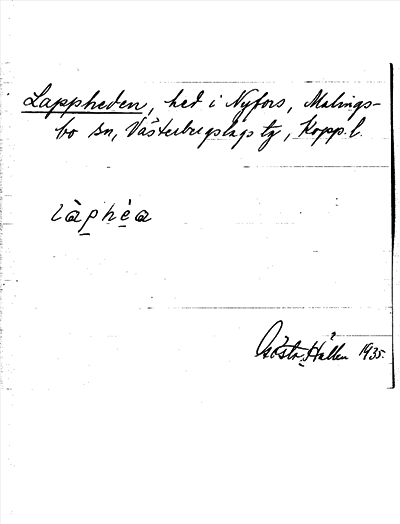 Lappheden, hed i Nyfors, Malings-
bo sn, Västerbergslags tg, Kopp. l.
làp̲hè̲a
Gösta Hallen 1935.